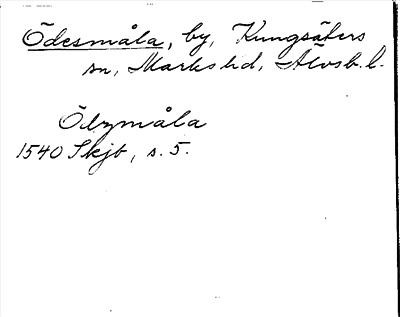 Ödesmåla, by, Kungsäters
sn, Marks hd, Älvsb. l.
Ödzmåla
1540 Skjb, s. 5.